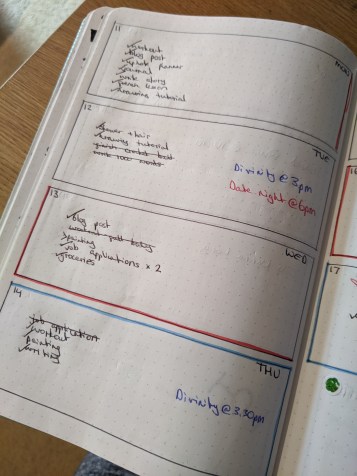 11
MON
workout
blog post
update planner
journal
write story
piano lesson
drawing tutorial
12
TUE
shower + hair
drawing tutorial
finish crochet
write 1000 words
Divinity @ 3pm
Date night @ 6pm
13
WED
blog post
workout
painting
job applications x 2
groceries
14
THU
job application
workout
painting
writing
Divinity @ 3.30pm
17